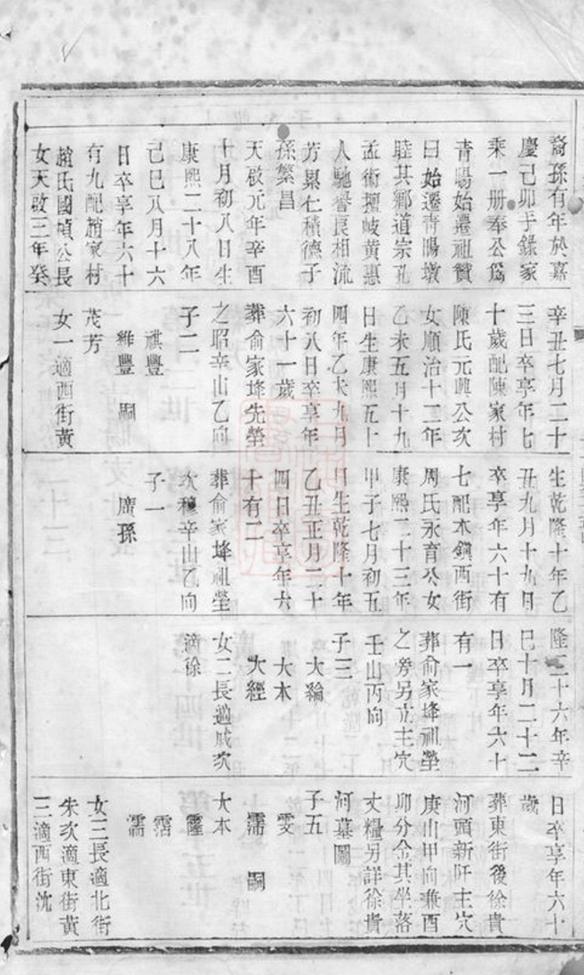 裔孫有年於嘉
慶己卯手錄家
乘一册奉公爲
青暘始遷祖贊
曰始遷青暘墩
睦其鄉道宗孔
孟術擅岐黃惠
人馳譽長相流
芳累仁積德子
孫繁昌
天啟元年辛酉
十月初八日生
康熙二十八年
己巳八月十六
日卒享年六十
有九配趙家村
趙氏國頃公長
女天啟三年癸
辛丑七月二十
三日卒享年七
十歲配陳家村
陳氏元興公次
女順治十二年
乙未五月十九
日生康熙五十
四年乙未九月
初八日卒享年
六十一歲
葬俞家埄先塋
之昭辛山乙向
子二
祺豐
維豐 嗣
茂芳
女一適西街黃
生乾隆十年乙
丑九月十九日
卒享年六十有
七配本鎮西街
周氏永育公女
康熙二十三年
甲子七月初五
日生乾隆十年
乙丑正月二十
四日卒享年六
十有二
葬俞家埄祖塋
次穆辛山乙向
子一
廣孫
隆二十六年辛
巳十月二十二
日卒享年六十
有一
葬俞家埄祖塋
之旁另立主穴
壬山丙向
子三
大綸
大本
大經
女二長適戚次
適徐
日卒享年六十
歲
葬東街後徐貴
河頭新阡主穴
庚山甲向兼酉
卯分金其坐落
丈糧另詳徐貴
河墓圖
子五
雯
霈 嗣
大本
霳
霑
霈
女三長適北街
朱次適東街黃
三適西街沈